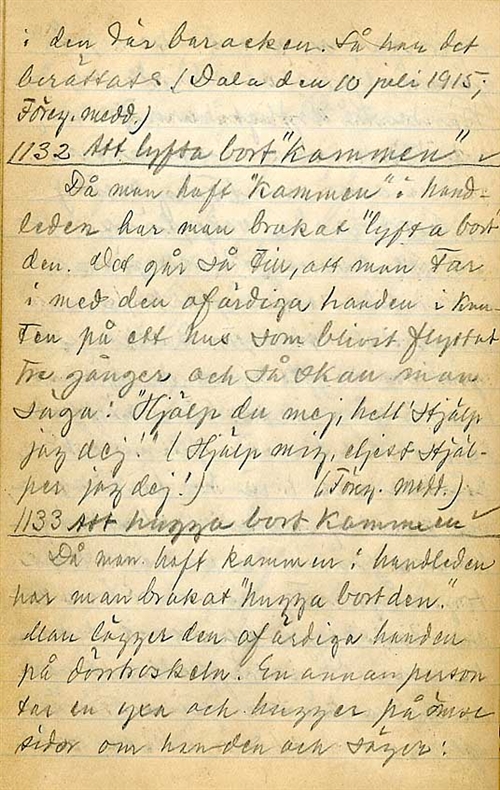 i den där baracken. Så har det
berättats. (Dala den 10 juli 1915;
Föreg. medd.)
1132 Att lyfta bort "kammen"
Då man haft "kammen" i hand-
leden har man brukat "lyfta bort
den. Det går så till, att man tar
i med den ofärdiga handen i knu-
ten på ett hus som blivit flyttat
tre gånger och så skall man
säga: "Hjälp du mej, hell' stjälp
jag dej!" (Hjälp mig, eljest stjäl-
per jag dej!) (Föreg. medd.)
1133 Att hugga bort kammen
Då man haft kammen i handleden
har man brukat "hugga bort den."
Man lägger den ofärdiga handen
på dörrtröskeln. En annan person
tar en yxa och hugger på
sidor om handen och säger: